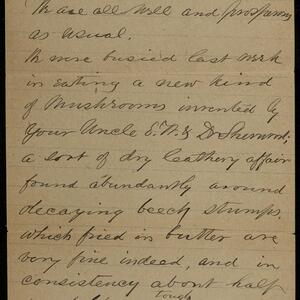 We are all well and prosperous
as usual.
We were busied last week
in eating a new kind
of Mushrooms invented by
your Uncle S. P. & Dr Sherwood;
a sort of dry leathery affair
found abundantly around
decaying beech stumps,
which fried in butter are
very fine indeed, and in
consistency about half
tough